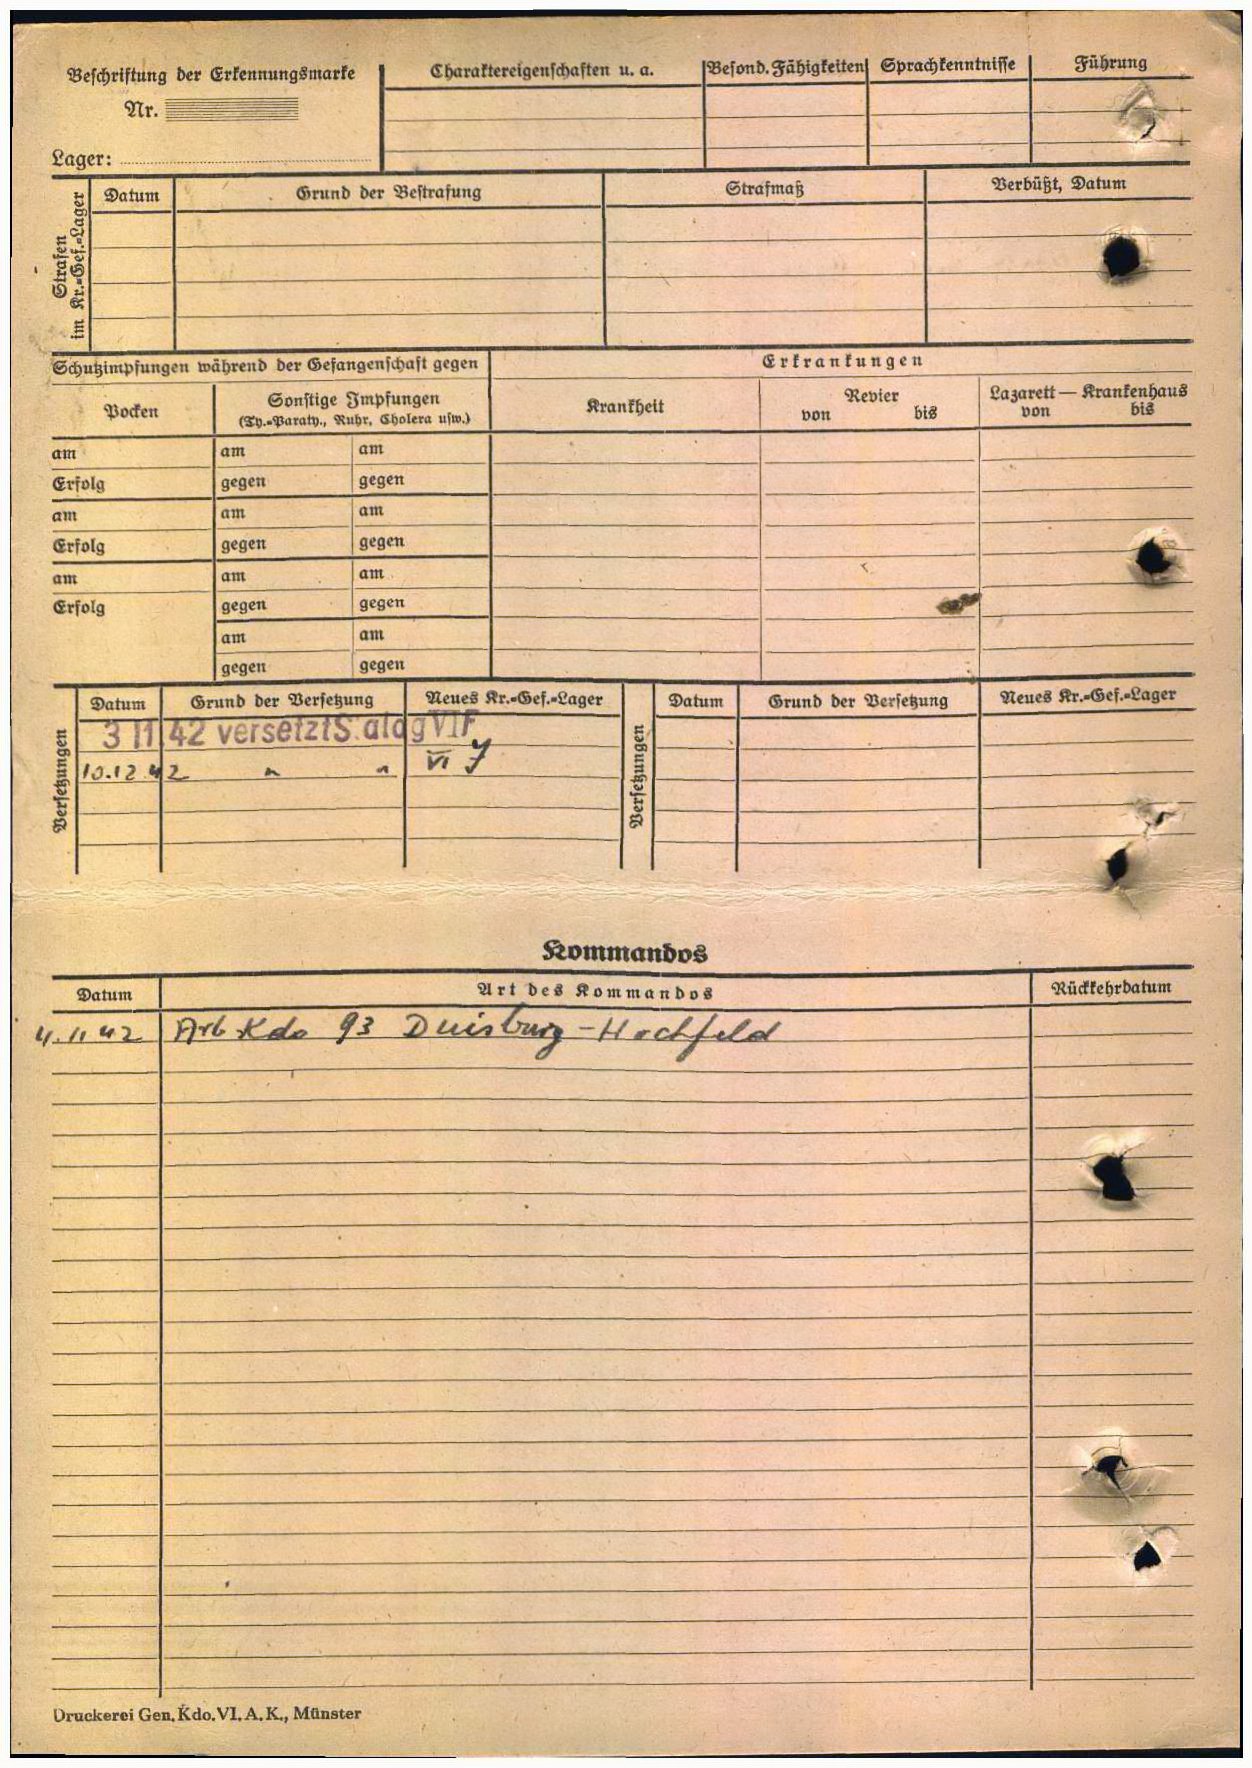 Beschriftung der Erkennungsmarke
Nr.
Lager:
Charaktereigenschaften u. a.
Besond. Fähigkeiten
Sprachkenntnisse
Führung
Strafen
im Kr.-Gef.-Lager
Datum
Grund der Bestrafung
Strafmaß
Verbüßt, Datum
Schutzimpfungen während der Gefangenschaft gegen
Erkrankungen
Pocken
Sonstige Impfungen
(Ty.-Paraty., Ruhr, Cholera usw.)
Krankheit
Revier
von bis
Lazarett — Krankenhaus
von bis
am am am
Erfolg gegen gegen
am am am
Erfolg gegen gegen
am am am
Erfolg gegen gegen
am am
gegen gegen
Versetzungen
Datum Grund der Versetzung Neues Kr.-Gef.-Lager
3 11.42 versetzt S alag VI F
10.12.42 " " VI J
Versetzungen
Datum Grund der Versetzung Neues Kr.-Gef.-Lager
Kommandos
Datum Art des Kommandos Rückkehrdatum
4.11.42 Arb Kdo 93 Duisburg-Hochfeld
Druckerei Gen. Kdo. VI. A. K., Münster